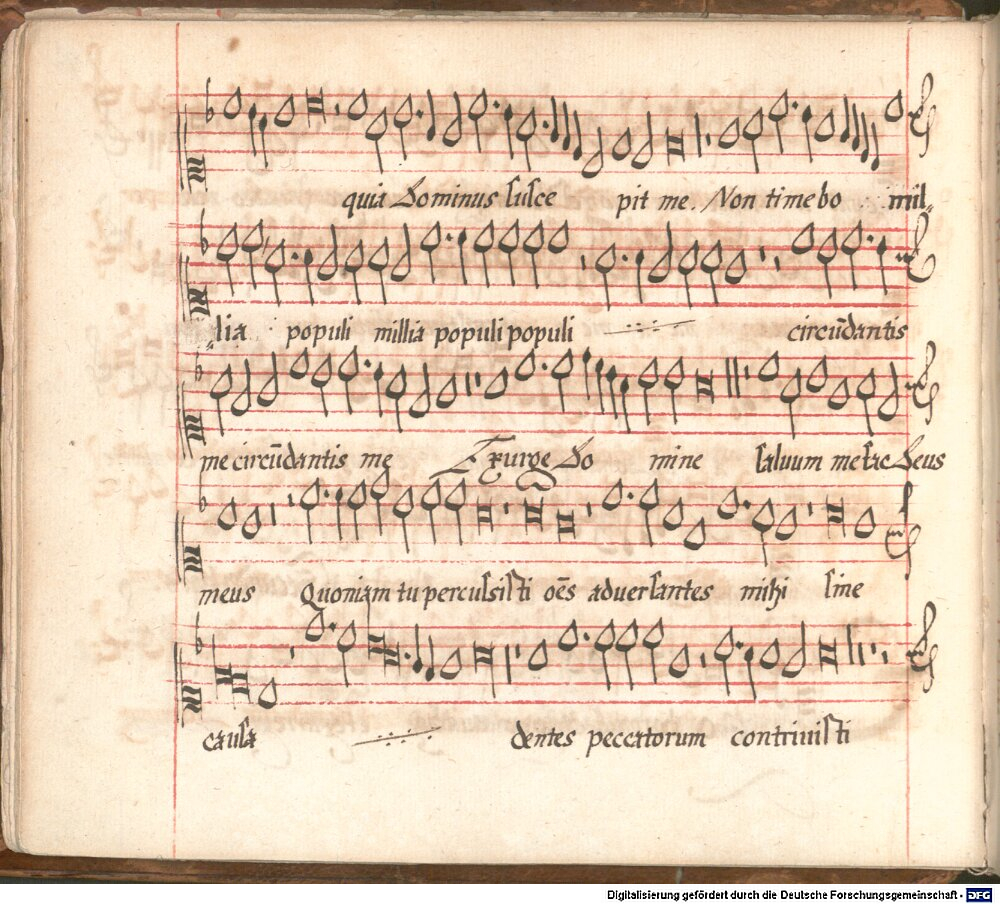 quia Dominus suſce pit me. Non timebo mil„
„lia populi millia populi populi circūdantis
me circūdantis me Exurge Do mine ſaluum me fac Deus
meus Quoniam tu percuſsiſti oēs aduerſantes mihi ſine
cauſa dentes peccatorum contriuiſti
Digitalisierung gefördert durch die Deutsche Forschungsgemeinschaft - DFG